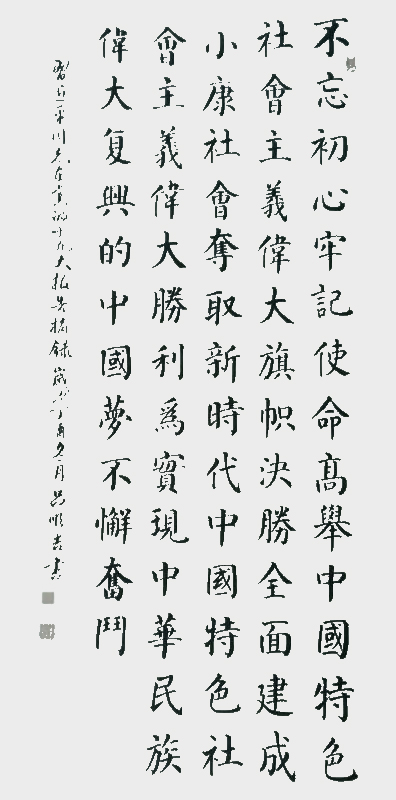 不忘初心牢記使命高舉中國特色
社會主義偉大旗幟決勝全面建成
小康社會奪取新時代中國特色社
會主義偉大勝利為實現中華民族
偉大复興的中國夢不懈奮鬥
習近平同志在黨的十九大報告摘錄歲在丁酉冬月吕順吉書